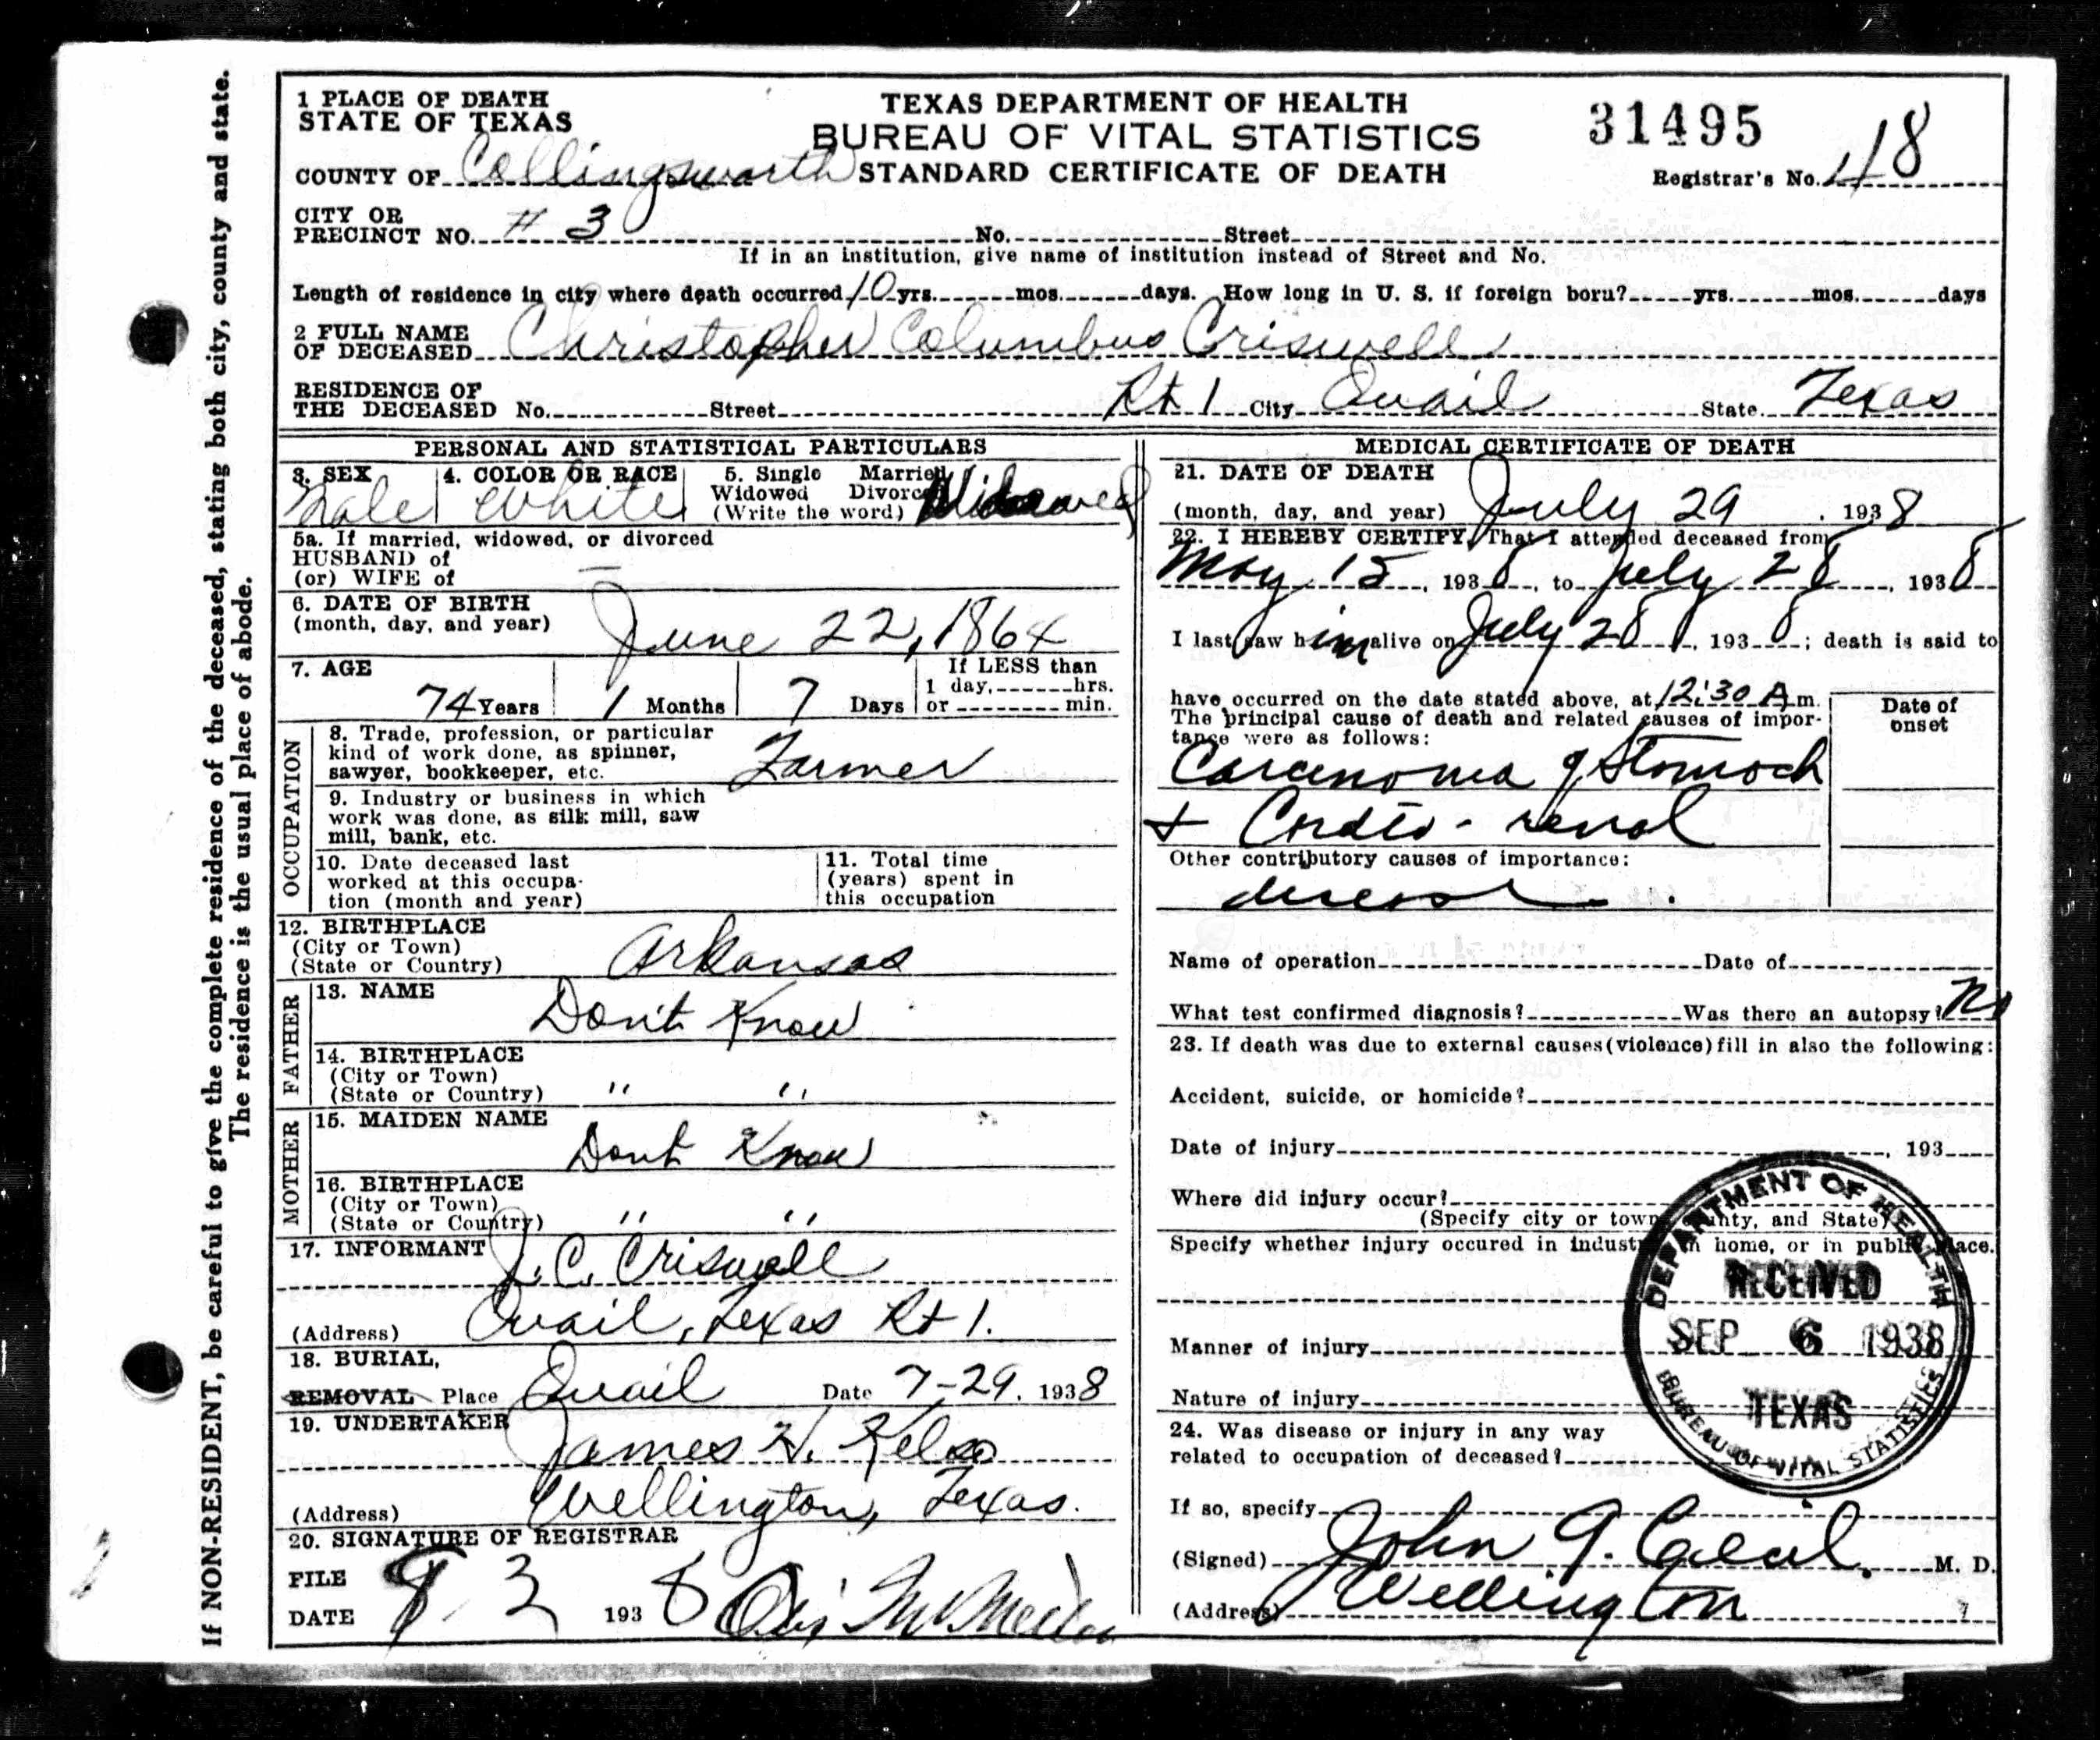 If NON-RESIDENT, be careful to give the complete residence of the deceased, stating both city, county and state.
The residence is the usual place of abode.
1 PLACE OF DEATH
STATE OF TEXAS
TEXAS DEPARTMENT OF HEALTH
BUREAU OF VITAL STATISTICS
STANDARD CERTIFICATE OF DEATH
31495
COUNTY OF Collingsworth
Registrar's No. 48
CITY OR
PRECINCT NO. # 3 No. Street
If in an institution, give name of institution instead of Street and No.
Length of residence in city where death occurred 10 yrs. mos. days. How long in U. S. if foreign born? yrs. mos. days
2 FULL NAME
OF DECEASED Christopher Columbus Criswell
RESIDENCE OF
THE DECEASED No. Street Rt 1 City Quail State Texas
PERSONAL AND STATISTICAL PARTICULARS
3. SEX
Male
4. COLOR OR RACE
White
5. Single Married
Widowed Divorced
(Write the word) Widowed
5a. If married, widowed, or divorced
HUSBAND of
(or) WIFE of —
6. DATE OF BIRTH
(month, day, and year) June 22, 1864
7. AGE
74 Years 1 Months 7 Days
If LESS than
1 day, hrs.
or min.
OCCUPATION
8. Trade, profession, or particular
kind of work done, as spinner,
sawyer, bookkeeper, etc. Farmer
9. Industry or business in which
work was done, as silk mill, saw
mill, bank, etc.
10. Date deceased last
worked at this occupa-
tion (month and year)
11. Total time
(years) spent in
this occupation
12. BIRTHPLACE
(City or Town)
(State or Country) Arkansas
FATHER
13. NAME Don't Know
14. BIRTHPLACE
(City or Town)
(State or Country) " "
MOTHER
15. MAIDEN NAME
Dont Know
16. BIRTHPLACE
(City or Town)
(State or Country) " "
17. INFORMANT J. C. Criswell
(Address) Quail, Texas Rt 1.
18. BURIAL,
REMOVAL Place Quail Date 7-29, 1938
19. UNDERTAKER
James H. Kelso
(Address) Wellington, Texas.
20. SIGNATURE OF REGISTRAR
FILE
DATE 8 3 1938
MEDICAL CERTIFICATE OF DEATH
21. DATE OF DEATH
(month, day, and year) July 29, 1938
22. I HEREBY CERTIFY, That I attended deceased from
May 15, 1938, to July 28, 1938
I last saw him alive on July 28, 1938; death is said to
have occurred on the date stated above, at 12:30 A.m.
The principal cause of death and related causes of impor-
tance were as follows:
Date of
onset
Carcinoma of Stomach
+ Cardio-renal
Other contributory causes of importance:
disease.
Name of operation Date of
What test confirmed diagnosis? Was there an autopsy? No
23. If death was due to external causes (violence) fill in also the following:
Accident, suicide, or homicide?
Date of injury , 193
Where did injury occur?
(Specify city or town, county, and State)
Specify whether injury occured in industry, in home, or in public place.
Manner of injury
Nature of injury
24. Was disease or injury in any way
related to occupation of deceased?
If so, specify
(Signed) John G. Cecil. M. D.
(Address) Wellington
DEPARTMENT OF HEALTH
RECEIVED
SEP 6 1938
TEXAS
BUREAU OF VITAL STATISTICS